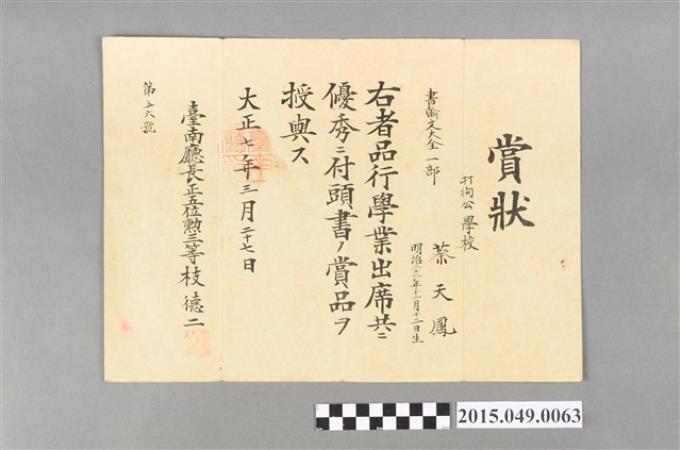 賞狀
打狗公學校
蔡天鳳
明治三十三年十一月十二日生
書翰文大全一部
右者品行學業出席共ニ
優秀ニ付頭書ノ賞品ヲ
授與ス
大正七年三月二十七日
臺南廳長正五位勲三等枝德二
第五六號
2015.049.0063